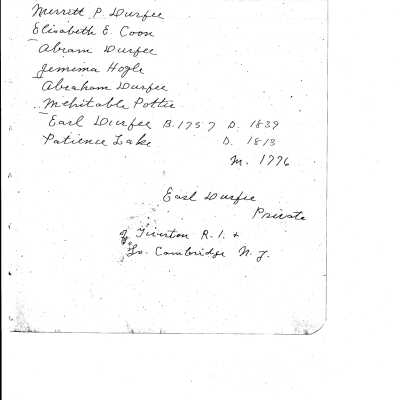 Merrett P. Durfee
Elisabeth E. Coon
Abram Durfee
Jemima Hogle
Abraham Durfee
Mehitable Pottie
Earl Durfee B. 1757 D. 1839
Patience Lake D. 1813
M. 1776
Earl Durfee
Private
of Tiverton R.I. &
So. Cambridge N.Y.